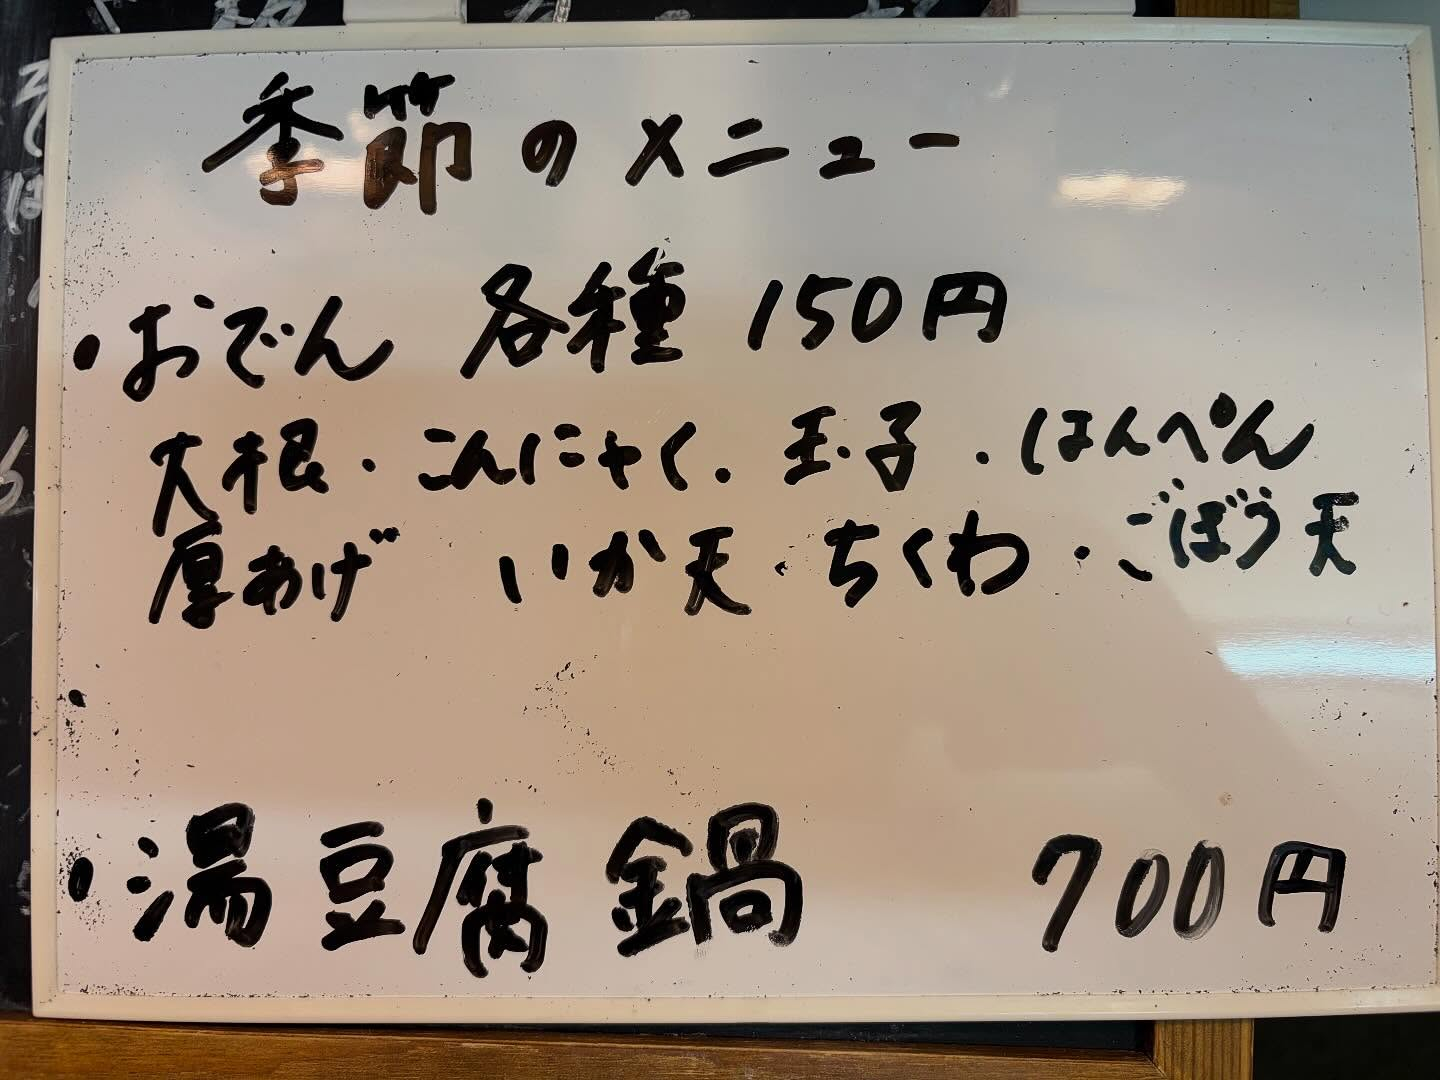 季節のメニュー
・おでん 各種 150円
大根・こんにゃく・玉子・はんぺん
厚あげ いか天・ちくわ・ごぼう天
・湯豆腐鍋 700円